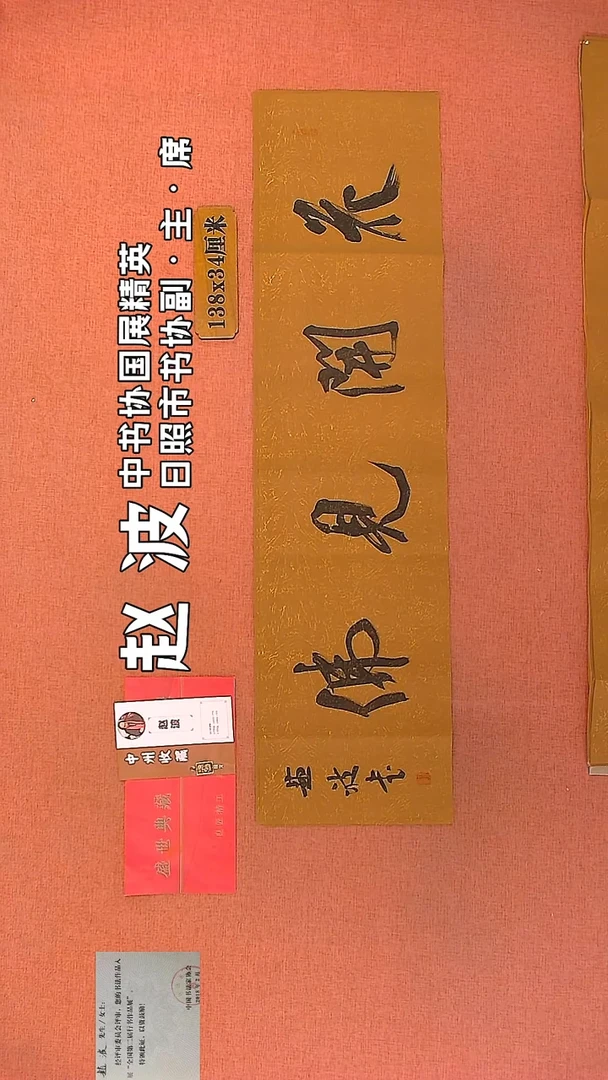 赵 波
中书协国展精英
日照市书协副·主·席
138x34厘米
花開見佛
趙波书
赵波
中州收藏
盛世典藏
趙波 先生/女士:
经评审委员会评审,您的书法作品入
展“全国第二届行书作品展”,
特颁此证,以资鼓励!
中国书法家协会